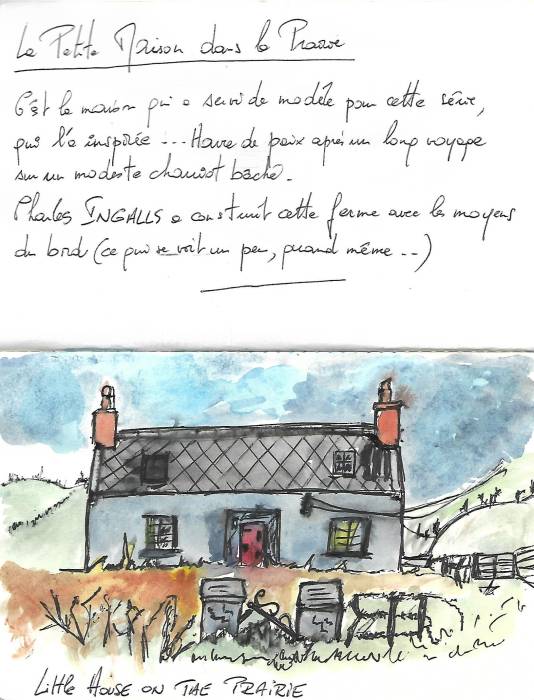 La Petite Maison dans la Prairie
C'est la maison qui a servi de modèle pour cette série,
qui l'a inspirée ... Havre de paix après un long voyage
sur un modeste chariot bâché.
Charles INGALLS a construit cette ferme avec les moyens
du bord (ce qui se voit un peu, quand même ...)
LITTLE HOUSE ON THE PRAIRIE